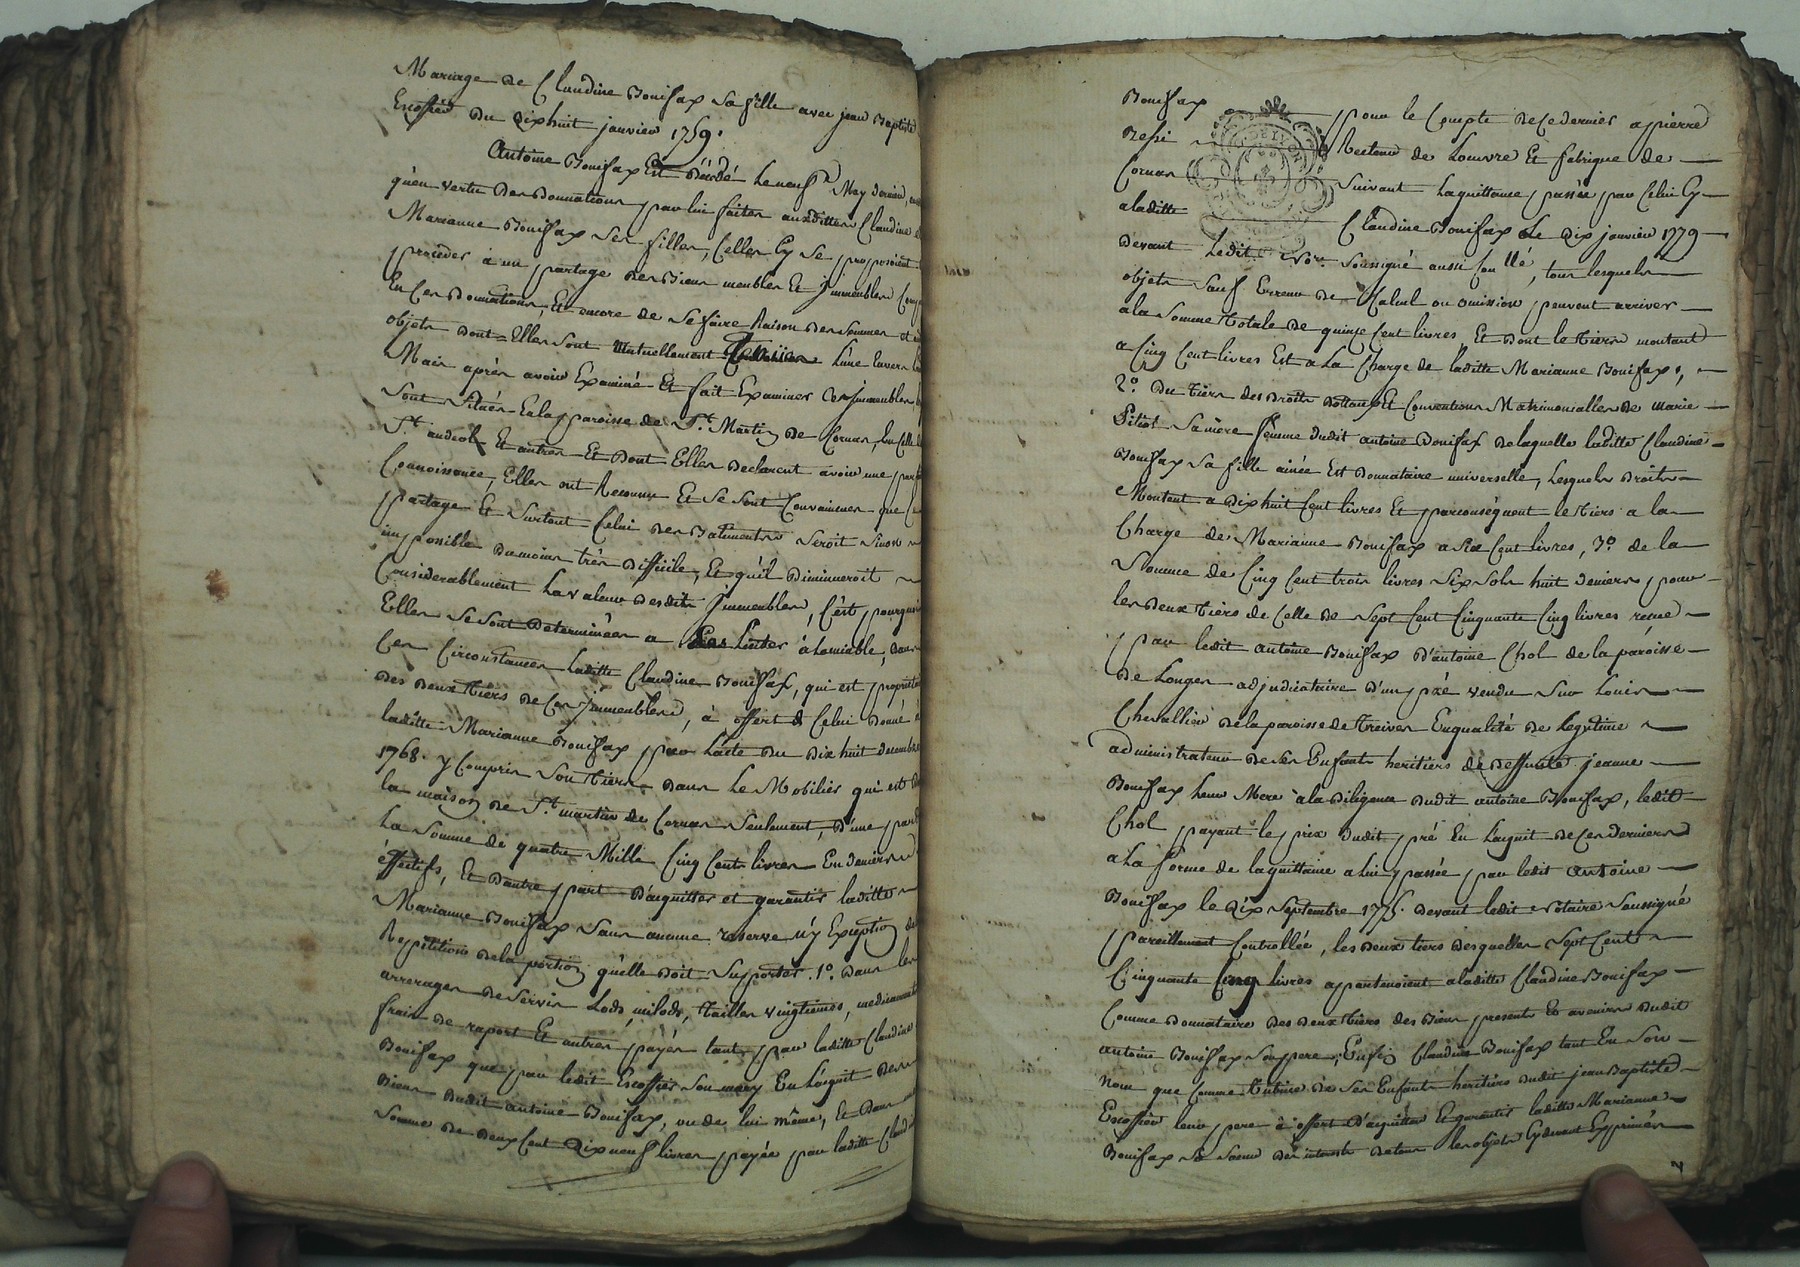 Mariage de Claudine Bonifax sa fille avec jean Baptiste
Escoffier du dixhuit janvier 1759.
Antoine Bonifax Est décédé le neuf May dernier,
qu'en vertu des donnations par lui faites auxdittes Claudine
Marianne Bonifax ses filles, Celles Cy se proposoient
proceder à un partage des Biens meubles Et jmmeubles
En Ces donnations, Et encore de se faire Raison des sommes et
objets dont Elles sont mutuellement L'une Envers
Mais après avoir Examiné Et fait Examiner Ces jmmeubles,
sont situés En la paroisse de St. Martin de Cornas, En Celle
St andeol Et autres Et dont Elles declarent avoir une
Connoissance, Elles ont Reconnu Et se sont Convaincues que
partage Et surtout Celui des Batiments seroit sinon
impossible dumoins très difficile, Et qu'il diminueroit
Considerablement La valeur desdits jmmeubles, C'est pourquoi
Elles se sont determinées a Les Liciter à L'amiable, dans
Ces Circonstances Laditte Claudine Bonifax, qui est
des deux tiers de Ces jmmeubles, à offert à Celui donné
laditte Marianne Bonifax par L'acte du dix huit decembre
1768. y Compris son tiers dans Le Mobilier qui est
la maison de St. martin de Cornas seulement, d'une part
La somme de quatre Mille Cinq Cents livres En deniers
éffectifs, Et d'autre part d'aquitter et garantir laditte
Marianne Bonifax sans aucune reserve n'y Exception
Repetitions de la portion qu'elle doit suporter. 1°. dans les
arrerages de servis Lods, milods, tailles vingtiemes,
frais de raport Et autres payés tant par laditte Claudine
Bonifax que par ledit Escoffier son mary En L'aquit des
Biens dudit antoine Bonifax, ou de lui même, Et dans
somme de deux Cent dix neuf livres payée par laditte
Bonifax pour le Compte de Ce dernier a pierre
Recteur de Louvre Et fabrique de
Cornas suivant La quittance passée par Celui Cy
a laditte Claudine Bonifax Le dix janvier 1779
devant Ledit Nore. soussigné aussi tous lesquels
objets sauf Erreur de Calcul ou omission peuvent arriver
a la somme totale de quinze Cent livres, Et dont le tiers montant
a Cinq Cent livres Est a La Charge de laditte Marianne Bonifax,
2°. du tiers des droits dottaux Et Conventions Matrimonialles de marie
sa mère femme dudit antoine Bonifax de laquelle laditte Claudine
Bonifax sa fille ainée Est donnataire universelle, Lesquels droits
Montent a dix huit Cent livres Et parconséquent le tiers a la
Charge de Marianne Bonifax a six Cent livres, 3°. de la
somme de Cinq Cent trois livres six sols huit deniers pour
les deux tiers de Celle de sept Cent Cinquante Cinq livres
par ledit antoine Bonifax d'antoine Chol de la paroisse
de Longes adjudicataire d'un pré vendu sur Louis
Chevallier de la paroisse de treives En qualité de legitime
administrateur de ses Enfants heritiers de deffunte jeanne
Bonifax leur Mere à la diligence dudit antoine Bonifax, ledit
Chol payant le prix dudit pré En L'aquit de Ces derniers
a La forme de la quittance a Lui passée par ledit antoine
Bonifax le dix septembre 1775. devant ledit Notaire soussigné
pareillement Controllée, les deux tiers desquelles sept Cent
Cinquante Cinq livres apartenoient a laditte Claudine Bonifax
Comme donnataire des deux tiers des Biens presents Et avenirs dudit
antoine Bonifax son pere; Enfin Claudine Bonifax tant En son
Nom que Comme tutrice de ses Enfants heritiers dudit jean Baptiste
Escoffier leur pere à offert d'aquitter Et garantir laditte Marianne
Bonifax sa soeur des interets de tous les objets Cy devant Exprimés